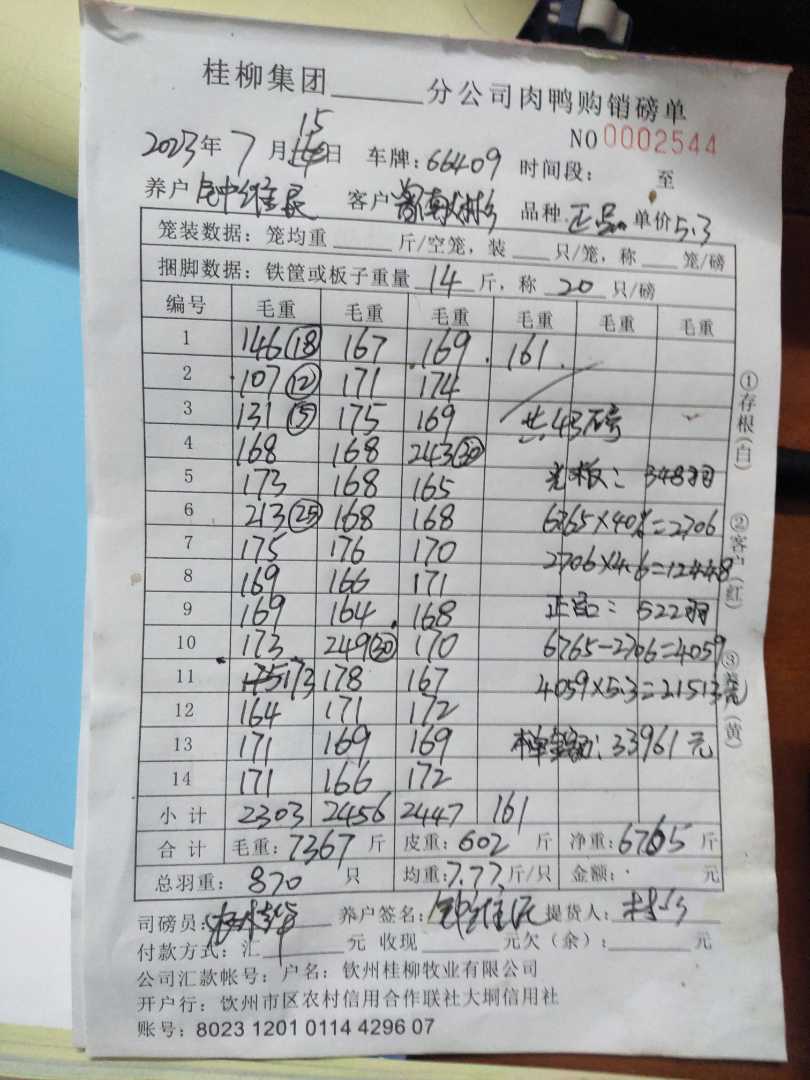 桂柳集团______分公司肉鸭购销磅单
NO 0002544
2023年 7 月 15 日 车牌: 66409 时间段: 至
养户 客户 品种 正品 单价 5.3
笼装数据: 笼均重 ____ 斤/空笼, 装 ___ 只/笼, 称 ___ 笼/磅
捆脚数据: 铁筐或板子重量 14 斤, 称 20 只/磅
编号 毛重 毛重 毛重 毛重 毛重 毛重
1 146 (18) 167 169 . 161 .
2 107 (12) 171 174
3 131 (15) 175 169 共43磅
4 168 168 243 (30)
5 173 168 165 光板: 348羽
6 213 (25) 168 168 6765×40%=2706
7 175 176 170 2706×4.6=12448
8 169 166 171
9 169 164 168 正品: 522羽
10 173 249 (30) 170 6765-2706=4059
11 173 178 167 4059×5.3=21513元
12 164 171 172
13 171 169 169 本单金额: 33961元
14 171 166 172
小计 2303 2456 2447 161
合计 毛重: 7367 斤 皮重: 602 斤 净重: 6765 斤
总羽重: 870 只 均重: 7.77 斤/只 金额: 元
司磅员: 养户签名: 提货人:
付款方式: 汇 ____ 元 收现 ____ 元欠(余): ____ 元
公司汇款帐号: 户名: 钦州桂柳牧业有限公司
开户行: 饮州市区农村信用合作联社大垌信用社
账号: 8023 1201 0114 4296 07
①存根(白)
②客户(红)
③养(黄)